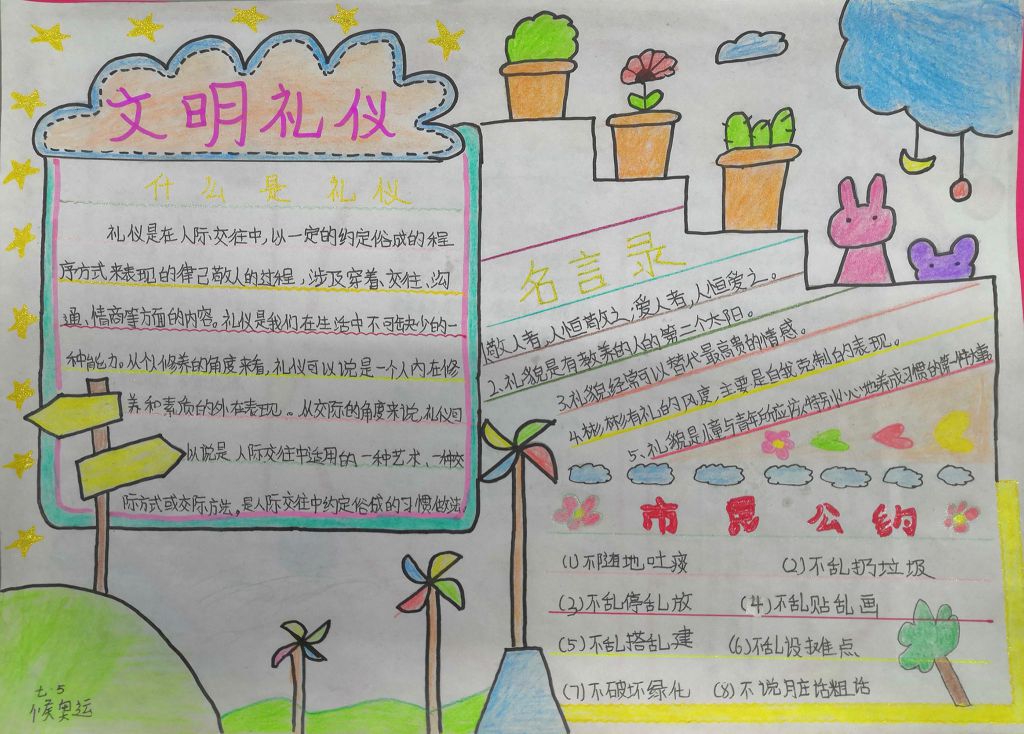 文明礼仪
什么是礼仪
礼仪是在人际交往中,以一定的约定俗成的程
序方式来表现的律己敬人的过程,涉及穿着、交往、沟
通、情商等方面的内容。礼仪是我们在生活中不可缺少的一
种能力。从个修养的角度来看,礼仪可以说是一个人内在修
养和素质的外在表现。从交际的角度来说,礼仪可
以说是人际交往中适用的一种艺术、一种交
际方式或交际方法。是人际交往中约定俗成的习惯做法.
名言录
敬人者,人恒敬之;爱人者,人恒爱之。
2.礼貌是有教养的人的第二个太阳。
3.礼貌经常可以替代最高贵的情感。
4.彬彬有礼的风度,主要是自我克制的表现。
5、礼貌是儿童与青年的应该特别小心地养成习惯的第一件大事
市民公约
(1)不随地吐痰 (2)不乱扔垃圾
(3)不乱停乱放 (4)不乱贴乱画
(5)不乱搭乱建 (6)不乱设摊点
(7)不破坏绿化 (8)不说脏话粗话
七.5
侯奥运